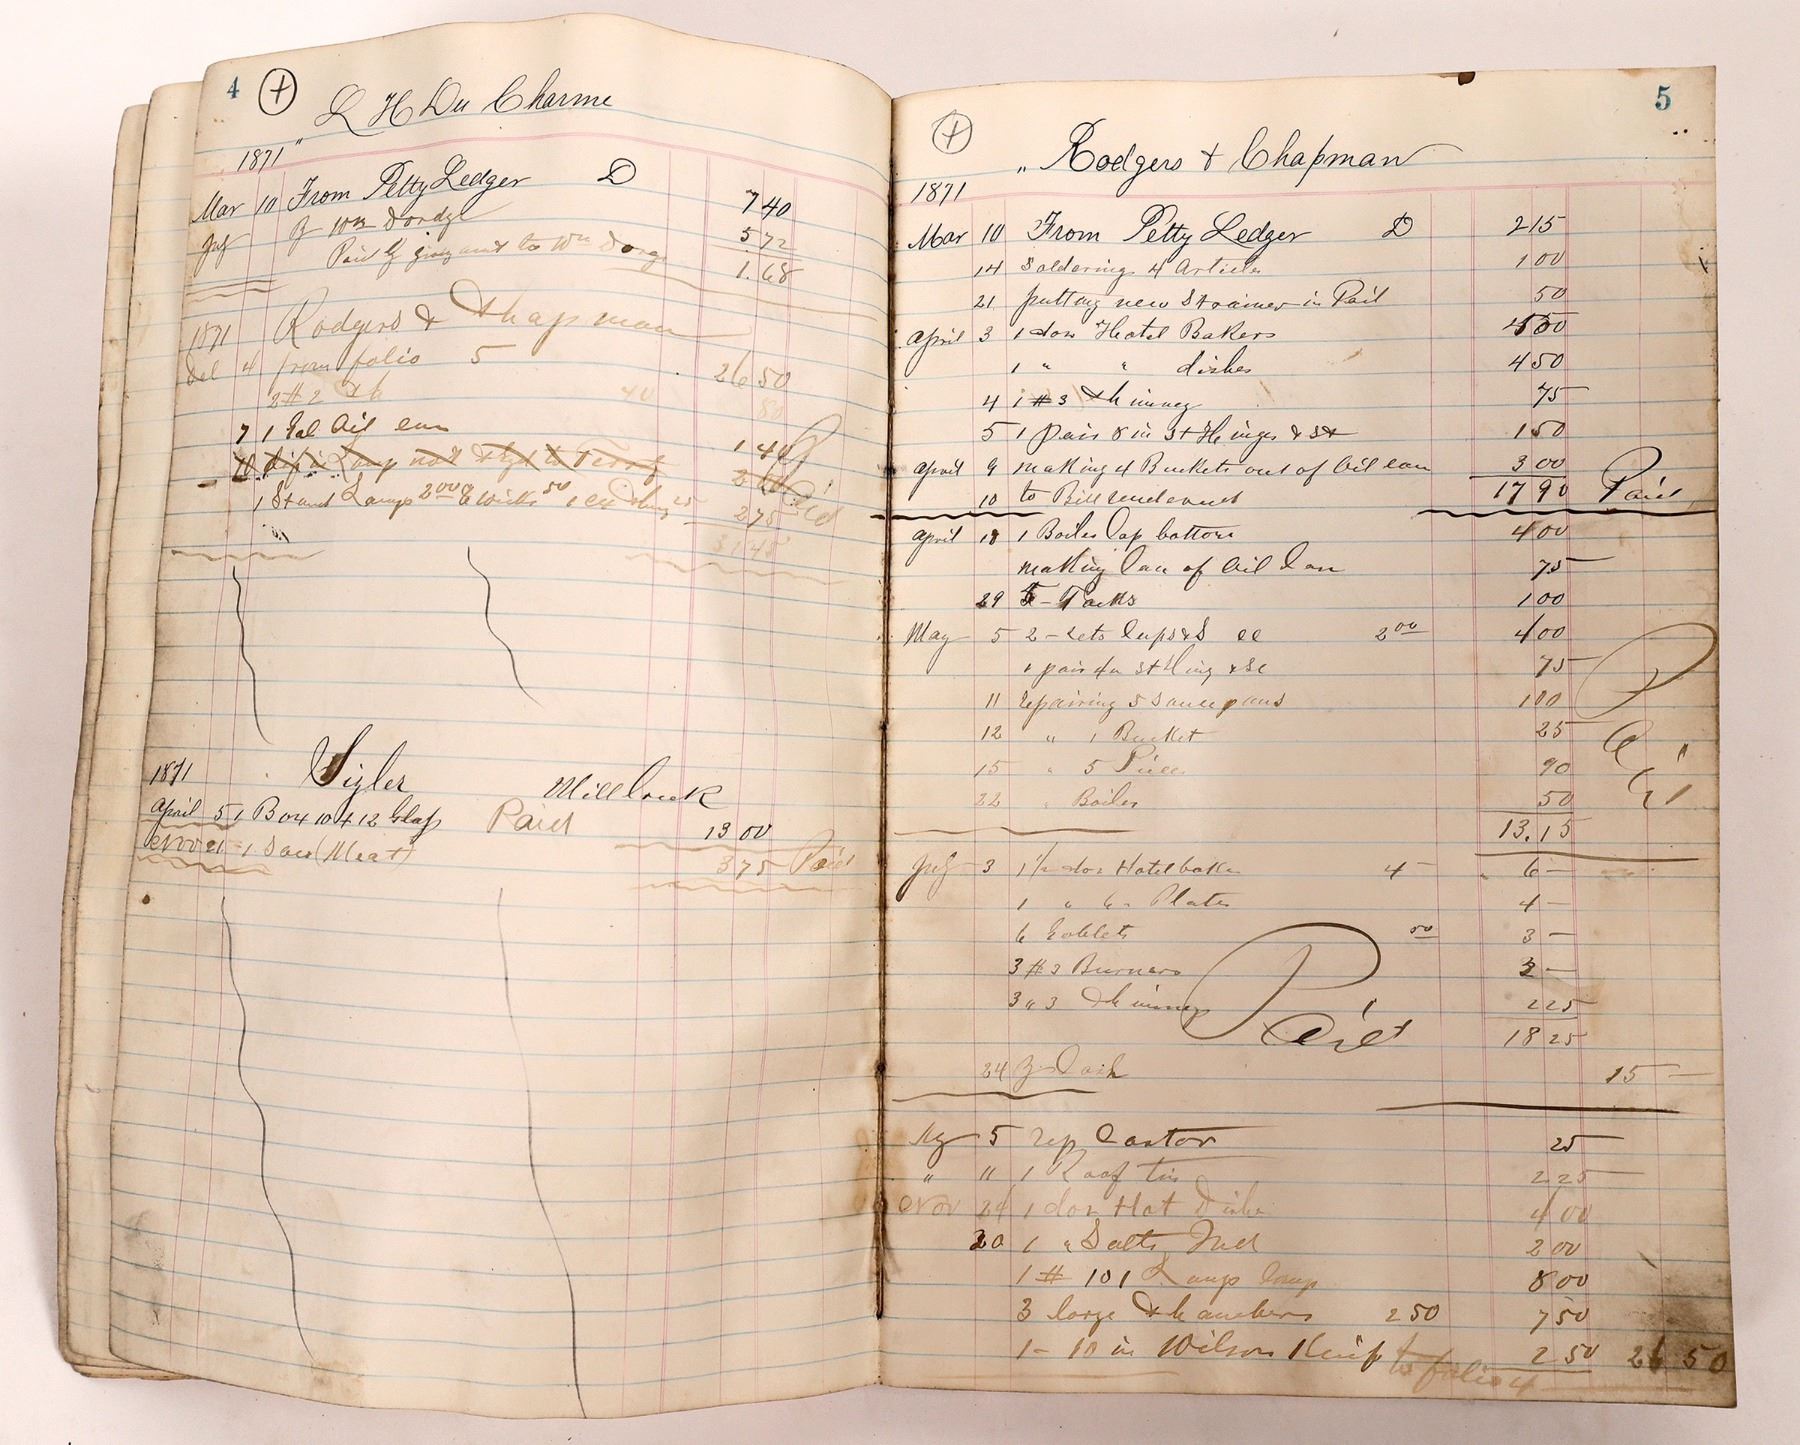 4
L H Du Charme
1871
Mar 10 From Petty Ledger D 7 40
July By Wm Dordge 5 72
Paid By giving amt to Wm Dorge 1.68
1871 Rodgers & Chapman
4 from folio 5 26 50
2 # 2 Ch 40 80
7 1 Gal Oil can 1 40
1 Stand Lamp 2 00 6 Wicks 50 1 Chimy 25 2 75
31 45
1871 Sigler Millbrook
April 5 1 Box 10 + 12 Glass Paid 13 00
Nov 21 1 Saw (Meat) 3 75 Paid
5
Rodgers & Chapman
1871
Mar 10 From Petty Ledger D 2 15
14 Soldering 4 Articles 1 00
21 putting new Strainer in Pail 50
April 3 1 doz Hotel Bakers 4 50
1 " " dishes 4 50
4 1 # 3 Chimney 75
5 1 pair 8 in St Hinges & St 1 50
April 9 making 4 Buckets out of Oil can 3 00
10 to Bill rendered 17 90 Paid
April 18 1 Boiler Cop bottom 4 00
making Can of Oil Can 75
29 5 - Tacks 1 00
May 5 2 - Sets Cups & S 2 00 4 00
1 pair 4 in St Hing & Sc 75
11 repairing 5 Saucepans 1 00
12 " 1 Bucket 25
15 " 5 Piece 90
22 " Boiler 50
Paid
13.15
July 3 1 1/2 doz Hotel bake 4 - 6 -
1 " 6 " Plates 4 -
6 Goblets 50 3 -
3 # 3 Burners 3 -
3 " 3 Chimneys 2 25
Paid 18 25
24 By Cash 15 -
5 rep Castor 25
" " 1 Roof tin 2 25
Nov 24 1 doz Hot Dishe 4 00
30 1 " Salts Ind 2 00
1 # 101 Lamp Comp 8 00
3 large Chambers 2 50 7 50
1 - 10 in Wilson Knife 2 50 26 50
to folio 4